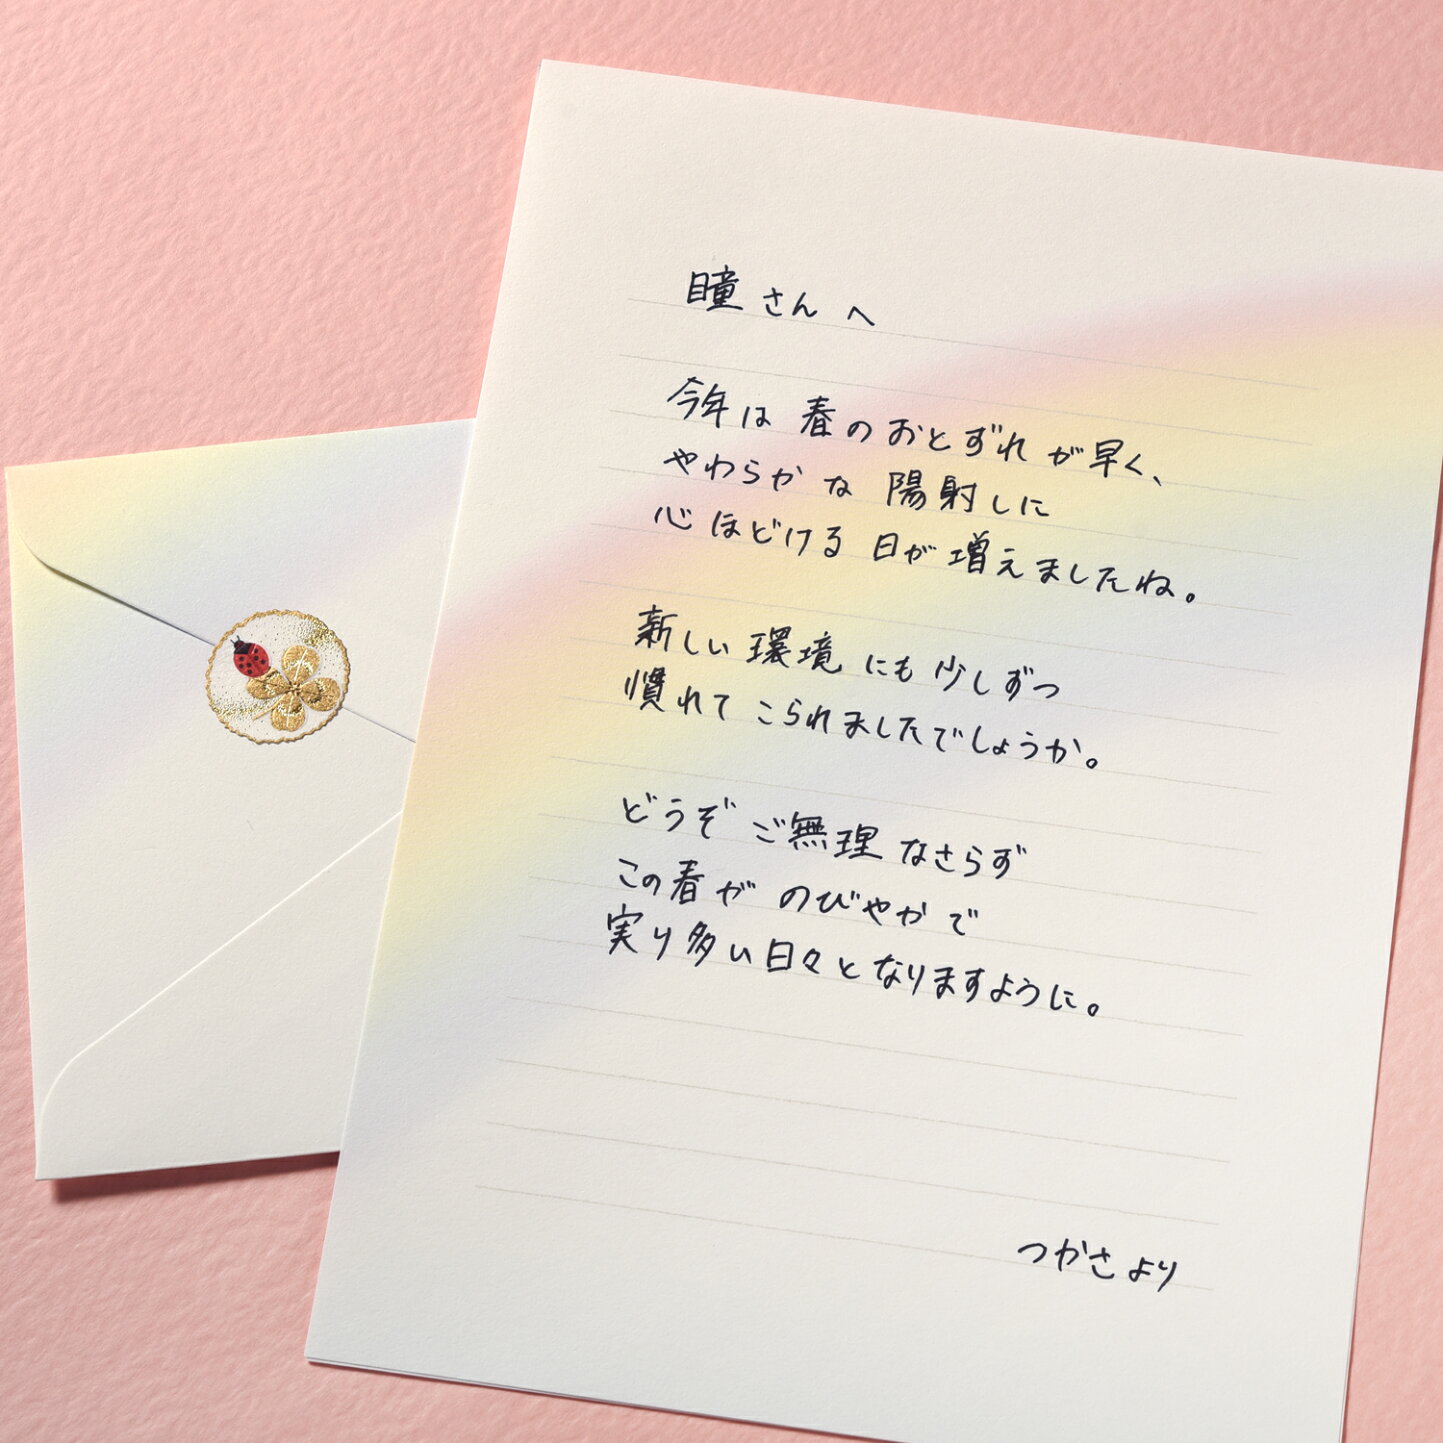 瞳さんへ
今年は春のおとずれが早く、
やわらかな陽射しに
心ほどける日が増えましたね。
新しい環境にも少しずつ
慣れてこられましたでしょうか。
どうぞご無理なさらず
この春がのびやかで
実り多い日々となりますように。
つかさより